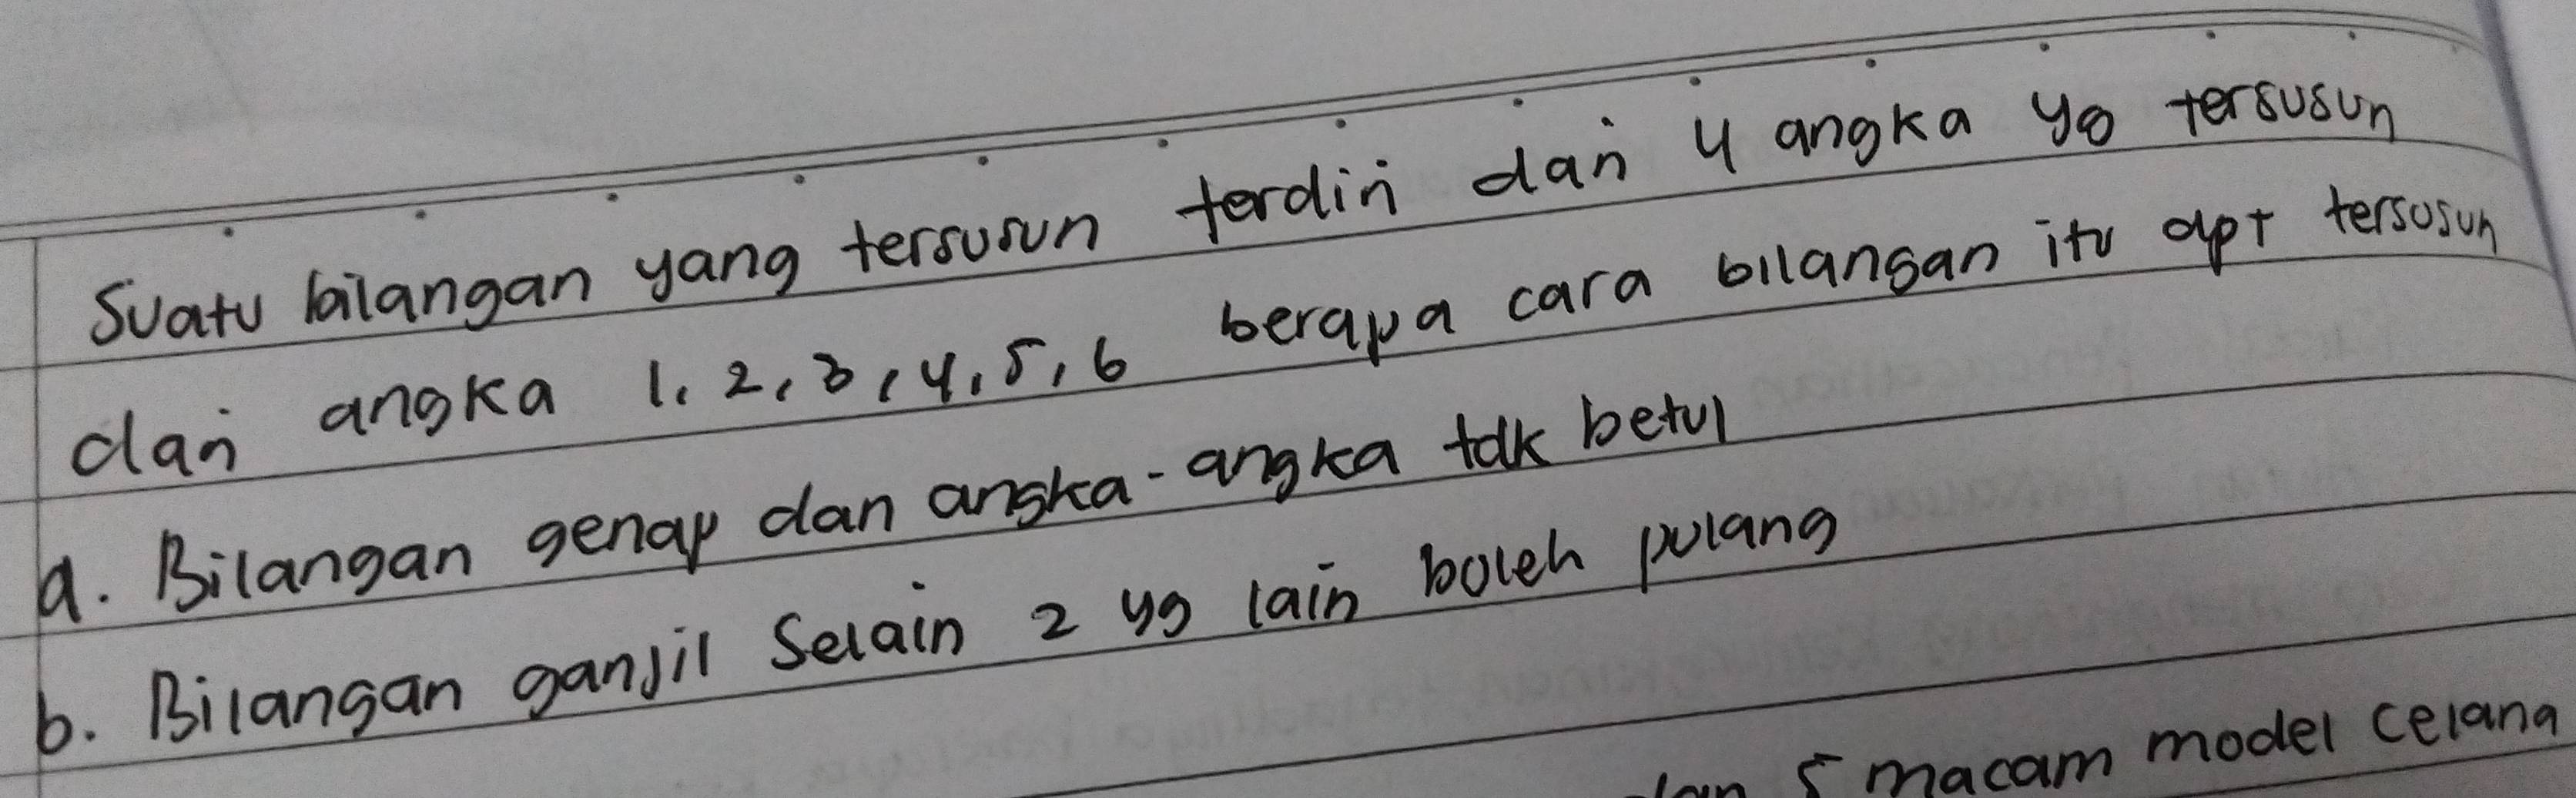 Suatu bilangan yang tersusun terdiri dari 4 angka yg tersusun
dari angka 1, 2, 3, 4, 5, 6 berapa cara bilangan itu dpt tersusun
a. Bilangan genap dan angka-angka tdk betul
b. Bilangan ganjil Selain 2 yg lain boleh pulang
dan 5 macam model celana